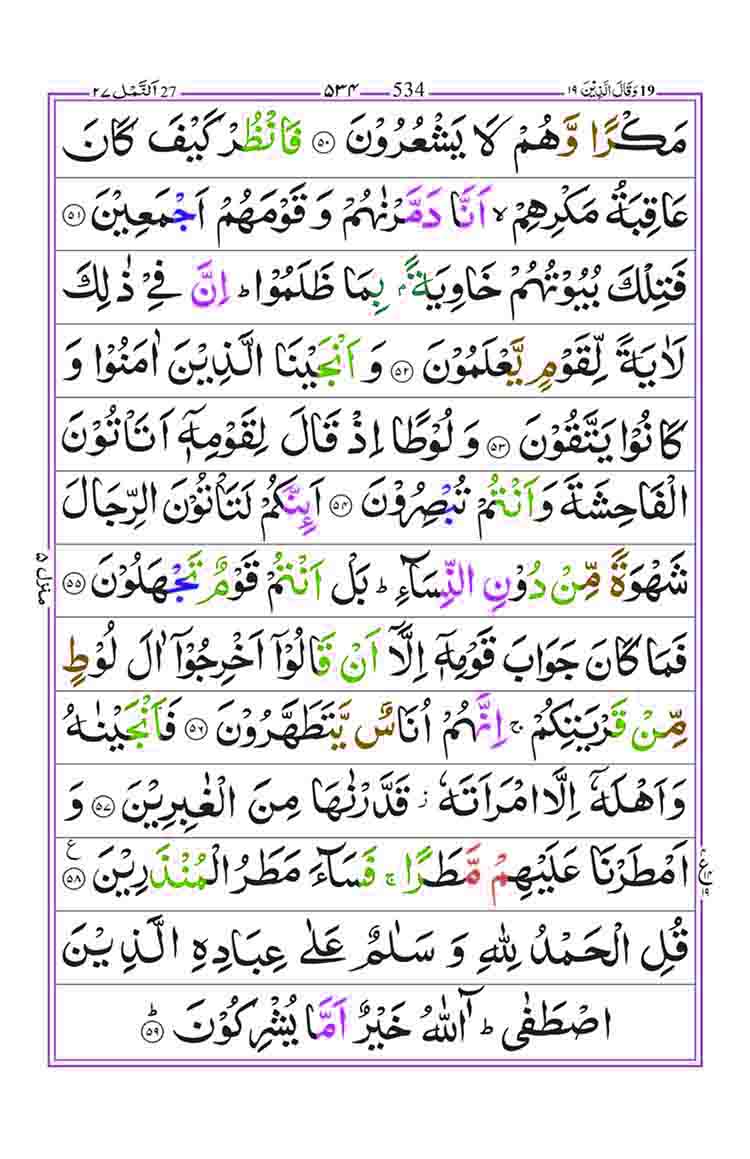 19 وَقَالَ الَّذِيْنَ ۱۹ 534 ۵۳۴ 27 اَلنَّمْل ۲۷
مَكْرًا وَّهُمْ لَا يَشْعُرُوْنَ ۝۵۰ فَانْظُرْ كَيْفَ كَانَ
عَاقِبَةُ مَكْرِهِمْ ۙ اَنَّا دَمَّرْنٰهُمْ وَ قَوْمَهُمْ اَجْمَعِيْنَ ۝۵۱
فَتِلْكَ بُيُوْتُهُمْ خَاوِيَةًۢ بِمَا ظَلَمُوْا ؕ اِنَّ فِيْ ذٰلِكَ
لَاٰيَةً لِّقَوْمٍ يَّعْلَمُوْنَ ۝۵۲ وَ اَنْجَيْنَا الَّذِيْنَ اٰمَنُوْا وَ
كَانُوْا يَتَّقُوْنَ ۝۵۳ وَ لُوْطًا اِذْ قَالَ لِقَوْمِهٖۤ اَتَاْتُوْنَ
الْفَاحِشَةَ وَ اَنْتُمْ تُبْصِرُوْنَ ۝۵۴ اَىِٕنَّكُمْ لَتَاْتُوْنَ الرِّجَالَ
شَهْوَةً مِّنْ دُوْنِ النِّسَآءِ ؕ بَلْ اَنْتُمْ قَوْمٌ تَجْهَلُوْنَ ۝۵۵
فَمَا كَانَ جَوَابَ قَوْمِهٖۤ اِلَّاۤ اَنْ قَالُوْۤا اَخْرِجُوْۤا اٰلَ لُوْطٍ
مِّنْ قَرْيَتِكُمْ ۚ اِنَّهُمْ اُنَاسٌ يَّتَطَهَّرُوْنَ ۝۵۶ فَاَنْجَيْنٰهُ
وَ اَهْلَهٗۤ اِلَّا امْرَاَتَهٗ ؗ قَدَّرْنٰهَا مِنَ الْغٰبِرِيْنَ ۝۵۷ وَ
اَمْطَرْنَا عَلَيْهِمْ مَّطَرًا ۚ فَسَآءَ مَطَرُ الْمُنْذَرِيْنَ ۝۵۸ ع
قُلِ الْحَمْدُ لِلّٰهِ وَ سَلٰمٌ عَلٰى عِبَادِهِ الَّذِيْنَ
اصْطَفٰى ؕ آٰللّٰهُ خَيْرٌ اَمَّا يُشْرِكُوْنَ ؕ۝۵۹
منزل ۵
۴ ع ۱۴ ۱۹